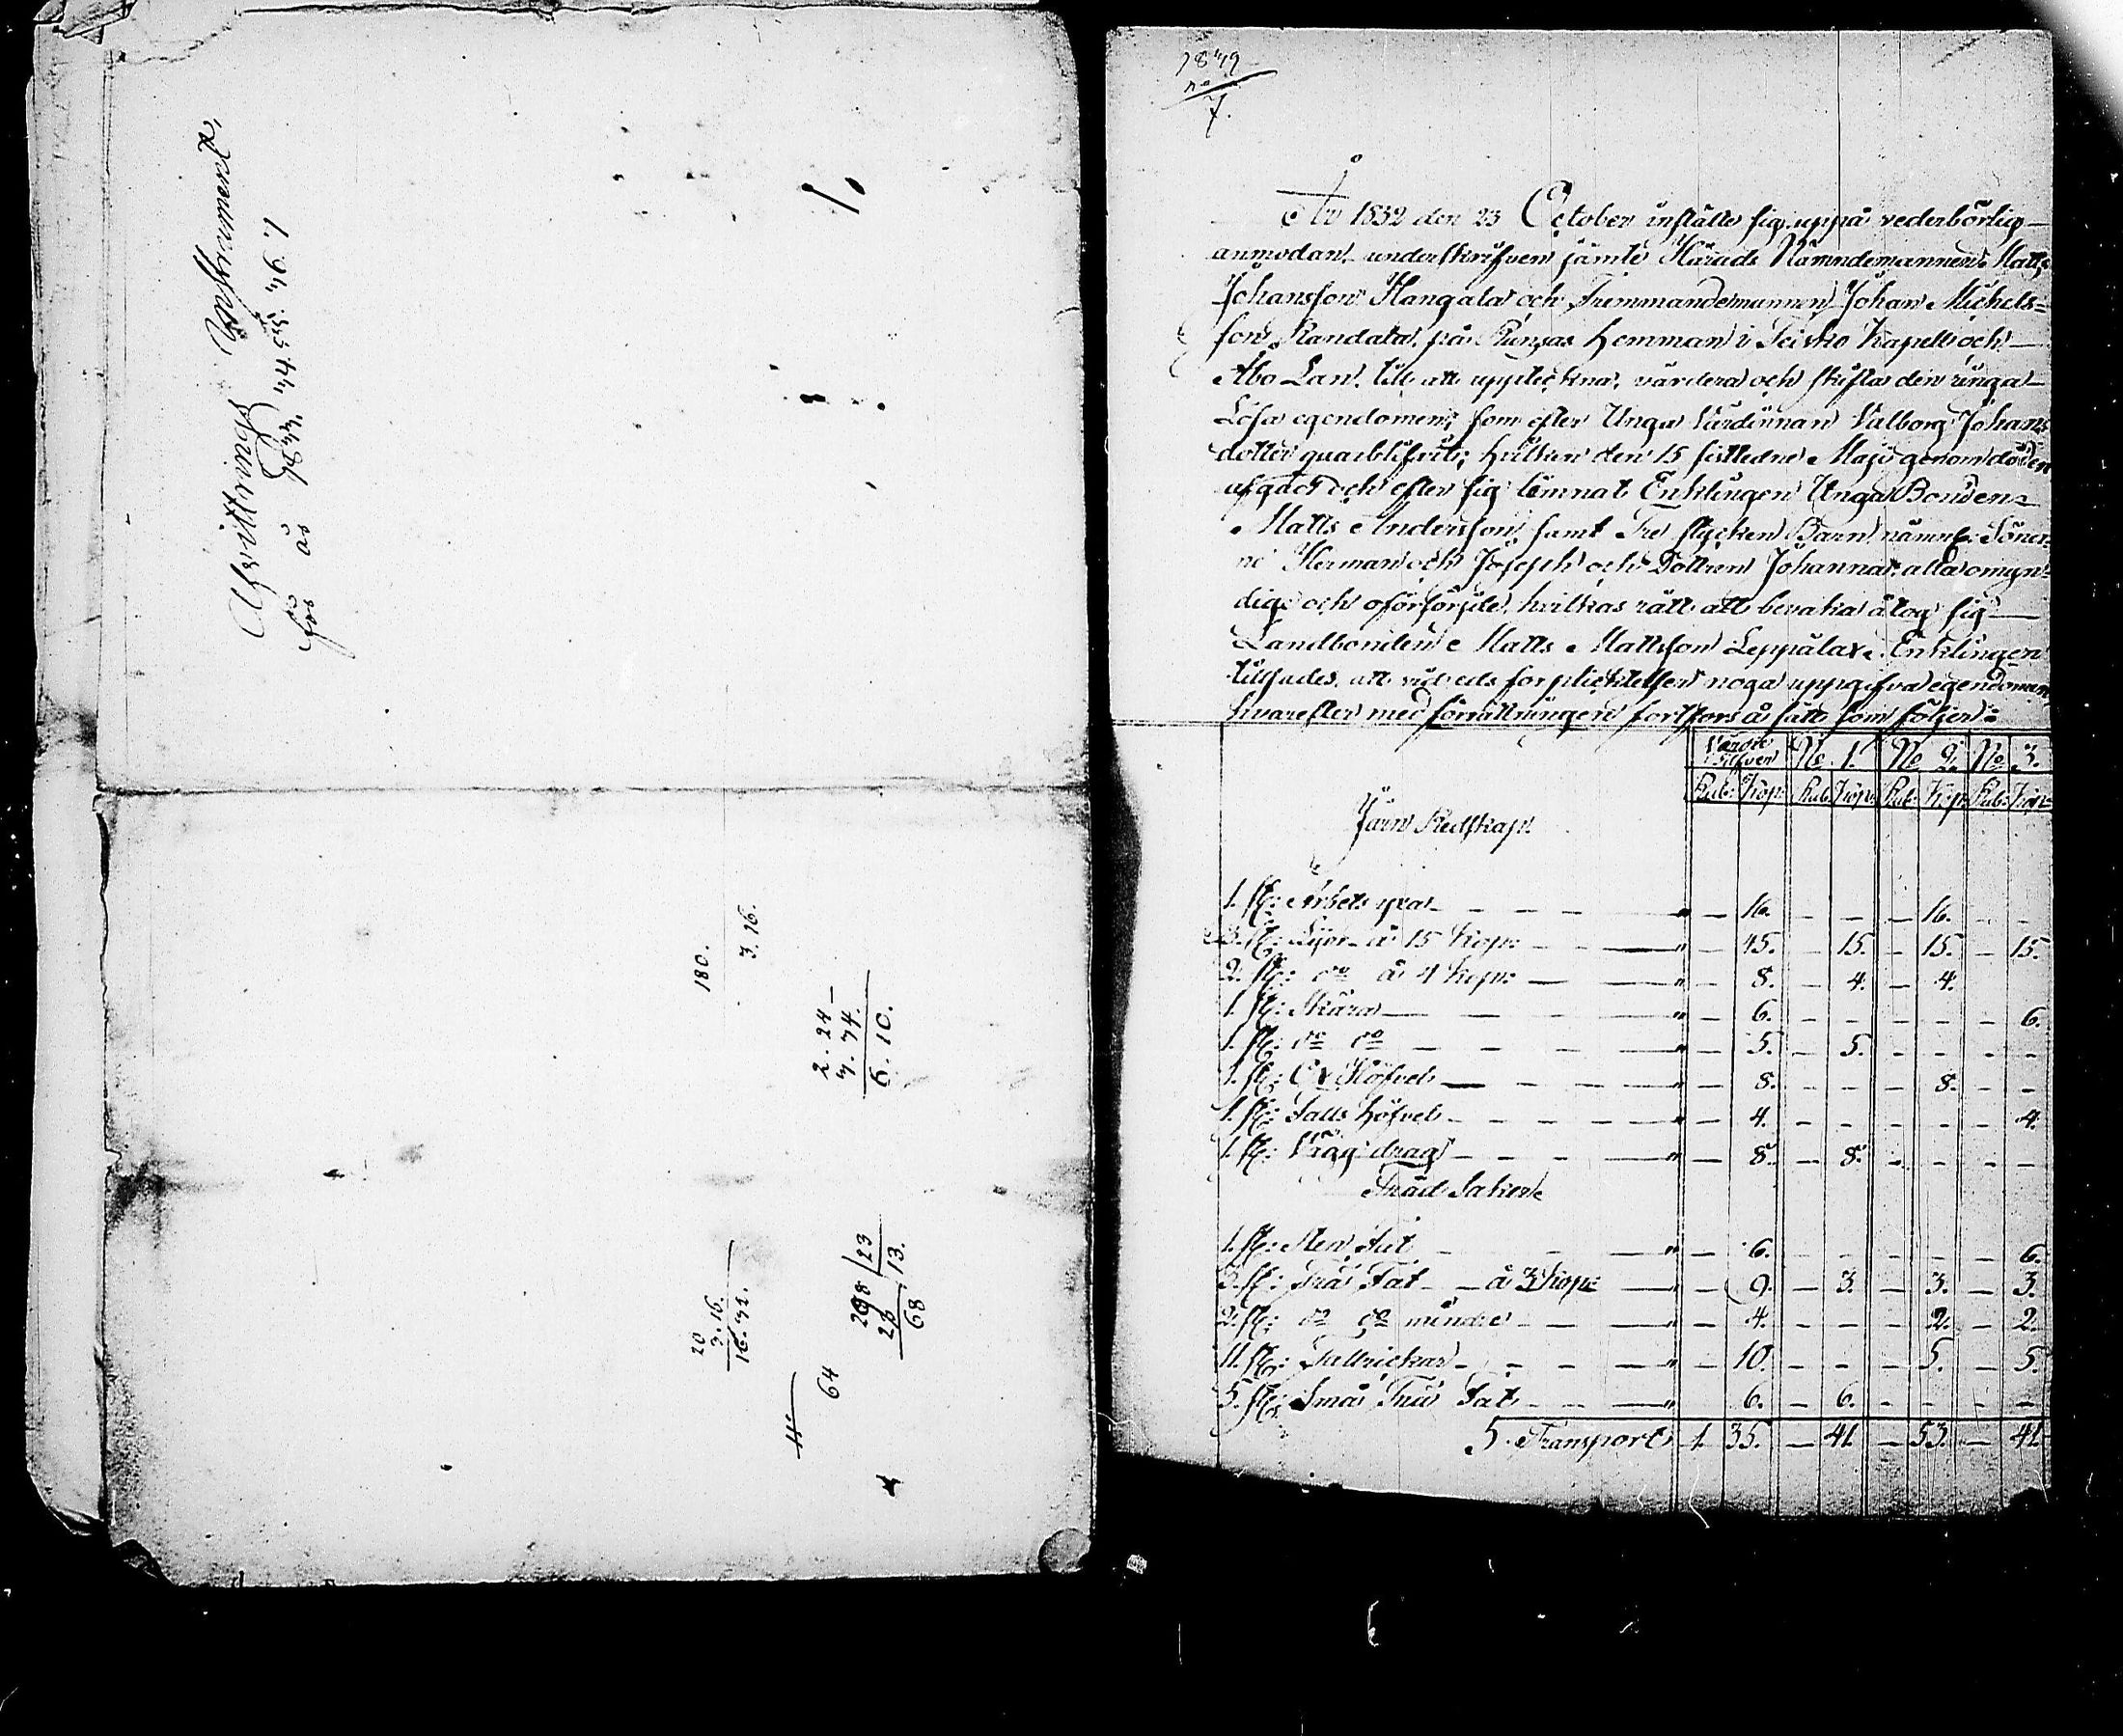 Afvittrings Instrument
för år
180.
3.16.
2.24 –
3.74.
6.10.
20
3.16.
16.32.
64
298 23
23 13.
68
1849
no
7.
År 1832 den 23 October instälte sig uppå vederbörlig
anmodan, underskrifven jämte Härads Nämndemannen Matts
Johansson Hangala och Fremmandemannen Johan Michels-
son Randala, på Hemman i Teisko Kapell och
Åbo Län, till att upptekna, värdera och skifta den ringa
Lösa egendomen, som efter Unga Värdinnan Valborg Johans
dotter quarblifvit; hvilken den 15 sistledne Maji genom döden
afgått och efter sig lemnat Enklingen Unga Bonden
Matts Andersson, samt Tre stycken Barn nämnl: Söner-
ne Herman och Joseph och Dottren Johanna, alla omyn-
dige och oförsörjde, hvilkas rätt att bevaka åtog sig
Landbonden Matts Mattsson Leppälax. Enklingen
tillsades, att vid eds förplicktelser noga uppgifva egendomen
hvarefter med förrättningen fortfors å sätt som följer:
Värde Silfver No 1. No 2. No 3.
Rub: Kop: Rub: Kop: Rub: Kop: Rub: Kop:
Järn Redskap.
1. st: Arbets yxa – – – " – 16. – – – 16. – –
3. st: Lijor à 15 Kop: – – " – 45. – 15. – 15. – 15.
2. st: do à 4 Kop: – – " – 8. – 4. – 4.
1. st: Skära – – – " – 6. – – – – – 6.
1. st: do do – – – " – 5. – 5. – – – –
1. st: Ox Höfvel – – – " – 8. – – – 8. – –
1. st: Falls höfvel – – – " – 4. – – – – – 4.
1. st: Väg drag – – – " – 8. – 8. – – – –
Träd Saker
1. st: Sten Fat – – " – 6. – – – – – 6.
3. st: Trä Fat – à 3 Kop: – " – 9. – 3. – 3. – 3.
2. st: do do mindre – – " – 4. – – – 2. – 2.
11. st: Tallrickar – – – " – 10. – – – 5. – 5.
5. st: Små Trä Fat – – – " 6. – 6. – – – –
S. Transport 1. 35. – 41. – 53. – 41.